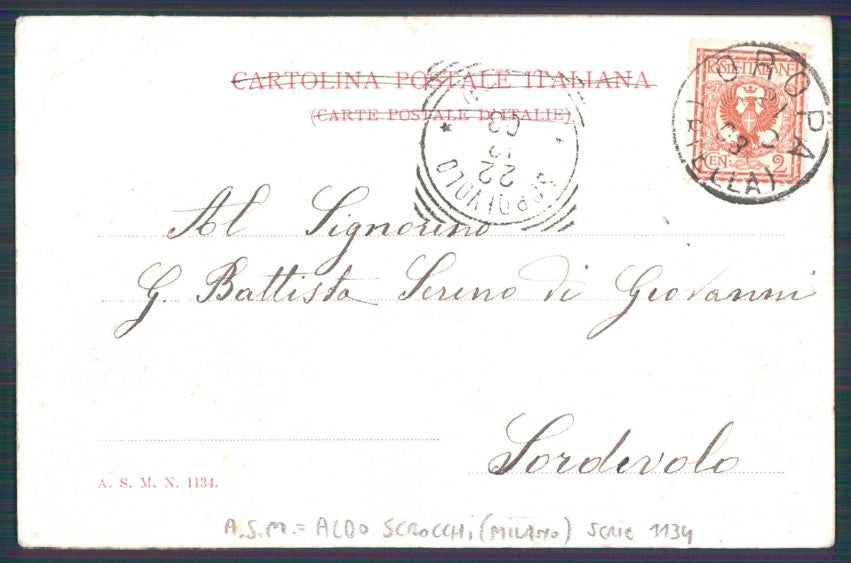 CARTOLINA POSTALE ITALIANA
(CARTE POSTALE D'ITALIE)
POSTE ITALIANE
CEN. 2
OROPA
(BIELLA)
SORDEVOLO
22
03
Al Signorino
G. Battista Sereno di Giovanni
Sordevolo
A. S. M. N. 1134.
A.S.M. = ALDO SCROCCHI (MILANO) SERIE 1134